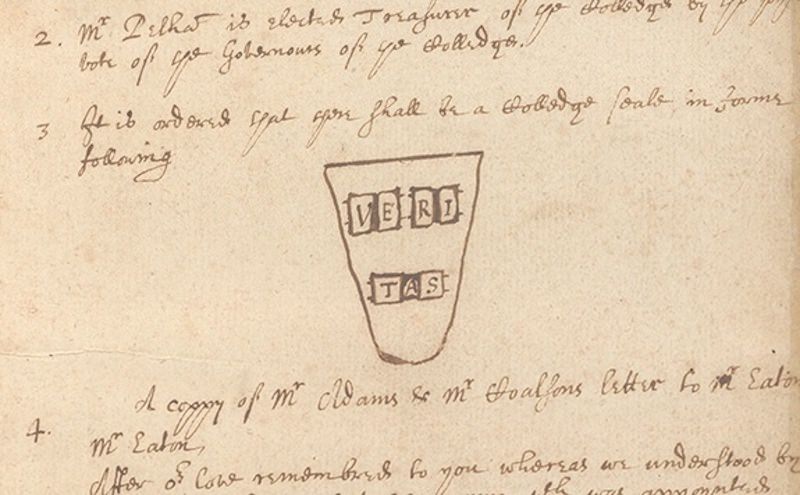 2. Mr Pelham is elected Treasurer of ye Colledge by the
vote of ye Governours of ye Colledge.
3 It is ordered that there shall be a Colledge seale in forme
following
VE RI
TAS
A coppy of Mr Adams & Mr letter to Mr Eaton
4.
Mr Eaton,
After or love remembred to you whereas we understood by